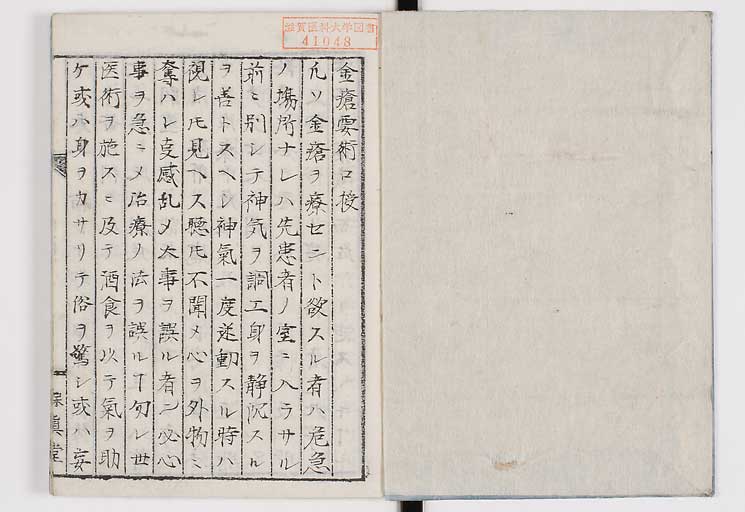 滋賀医科大学図書
41048
金瘡要術口授
凡ソ金瘡ヲ療セント欲スル者ハ危急
ノ場所ナレハ先患者ノ室ニ入ラサル
前ニ別シテ神気ヲ調エ身ヲ静沉スル
ヲ善トスヘシ神氣一度迷動スル時ハ
視レ𪜈見ヘス聴𪜈不聞〆心ヲ外物ニ
奪ハレ感乱〆大事ヲ誤ル者 必心
事ヲ急ニ〆治療ノ法ヲ誤ルヿ勿レ世
医術ヲ施スニ及テ酒食ヲ以テ氣ヲ助
ケ或ハ身ヲカサリテ俗ヲ驚シ或ハ妄
堂